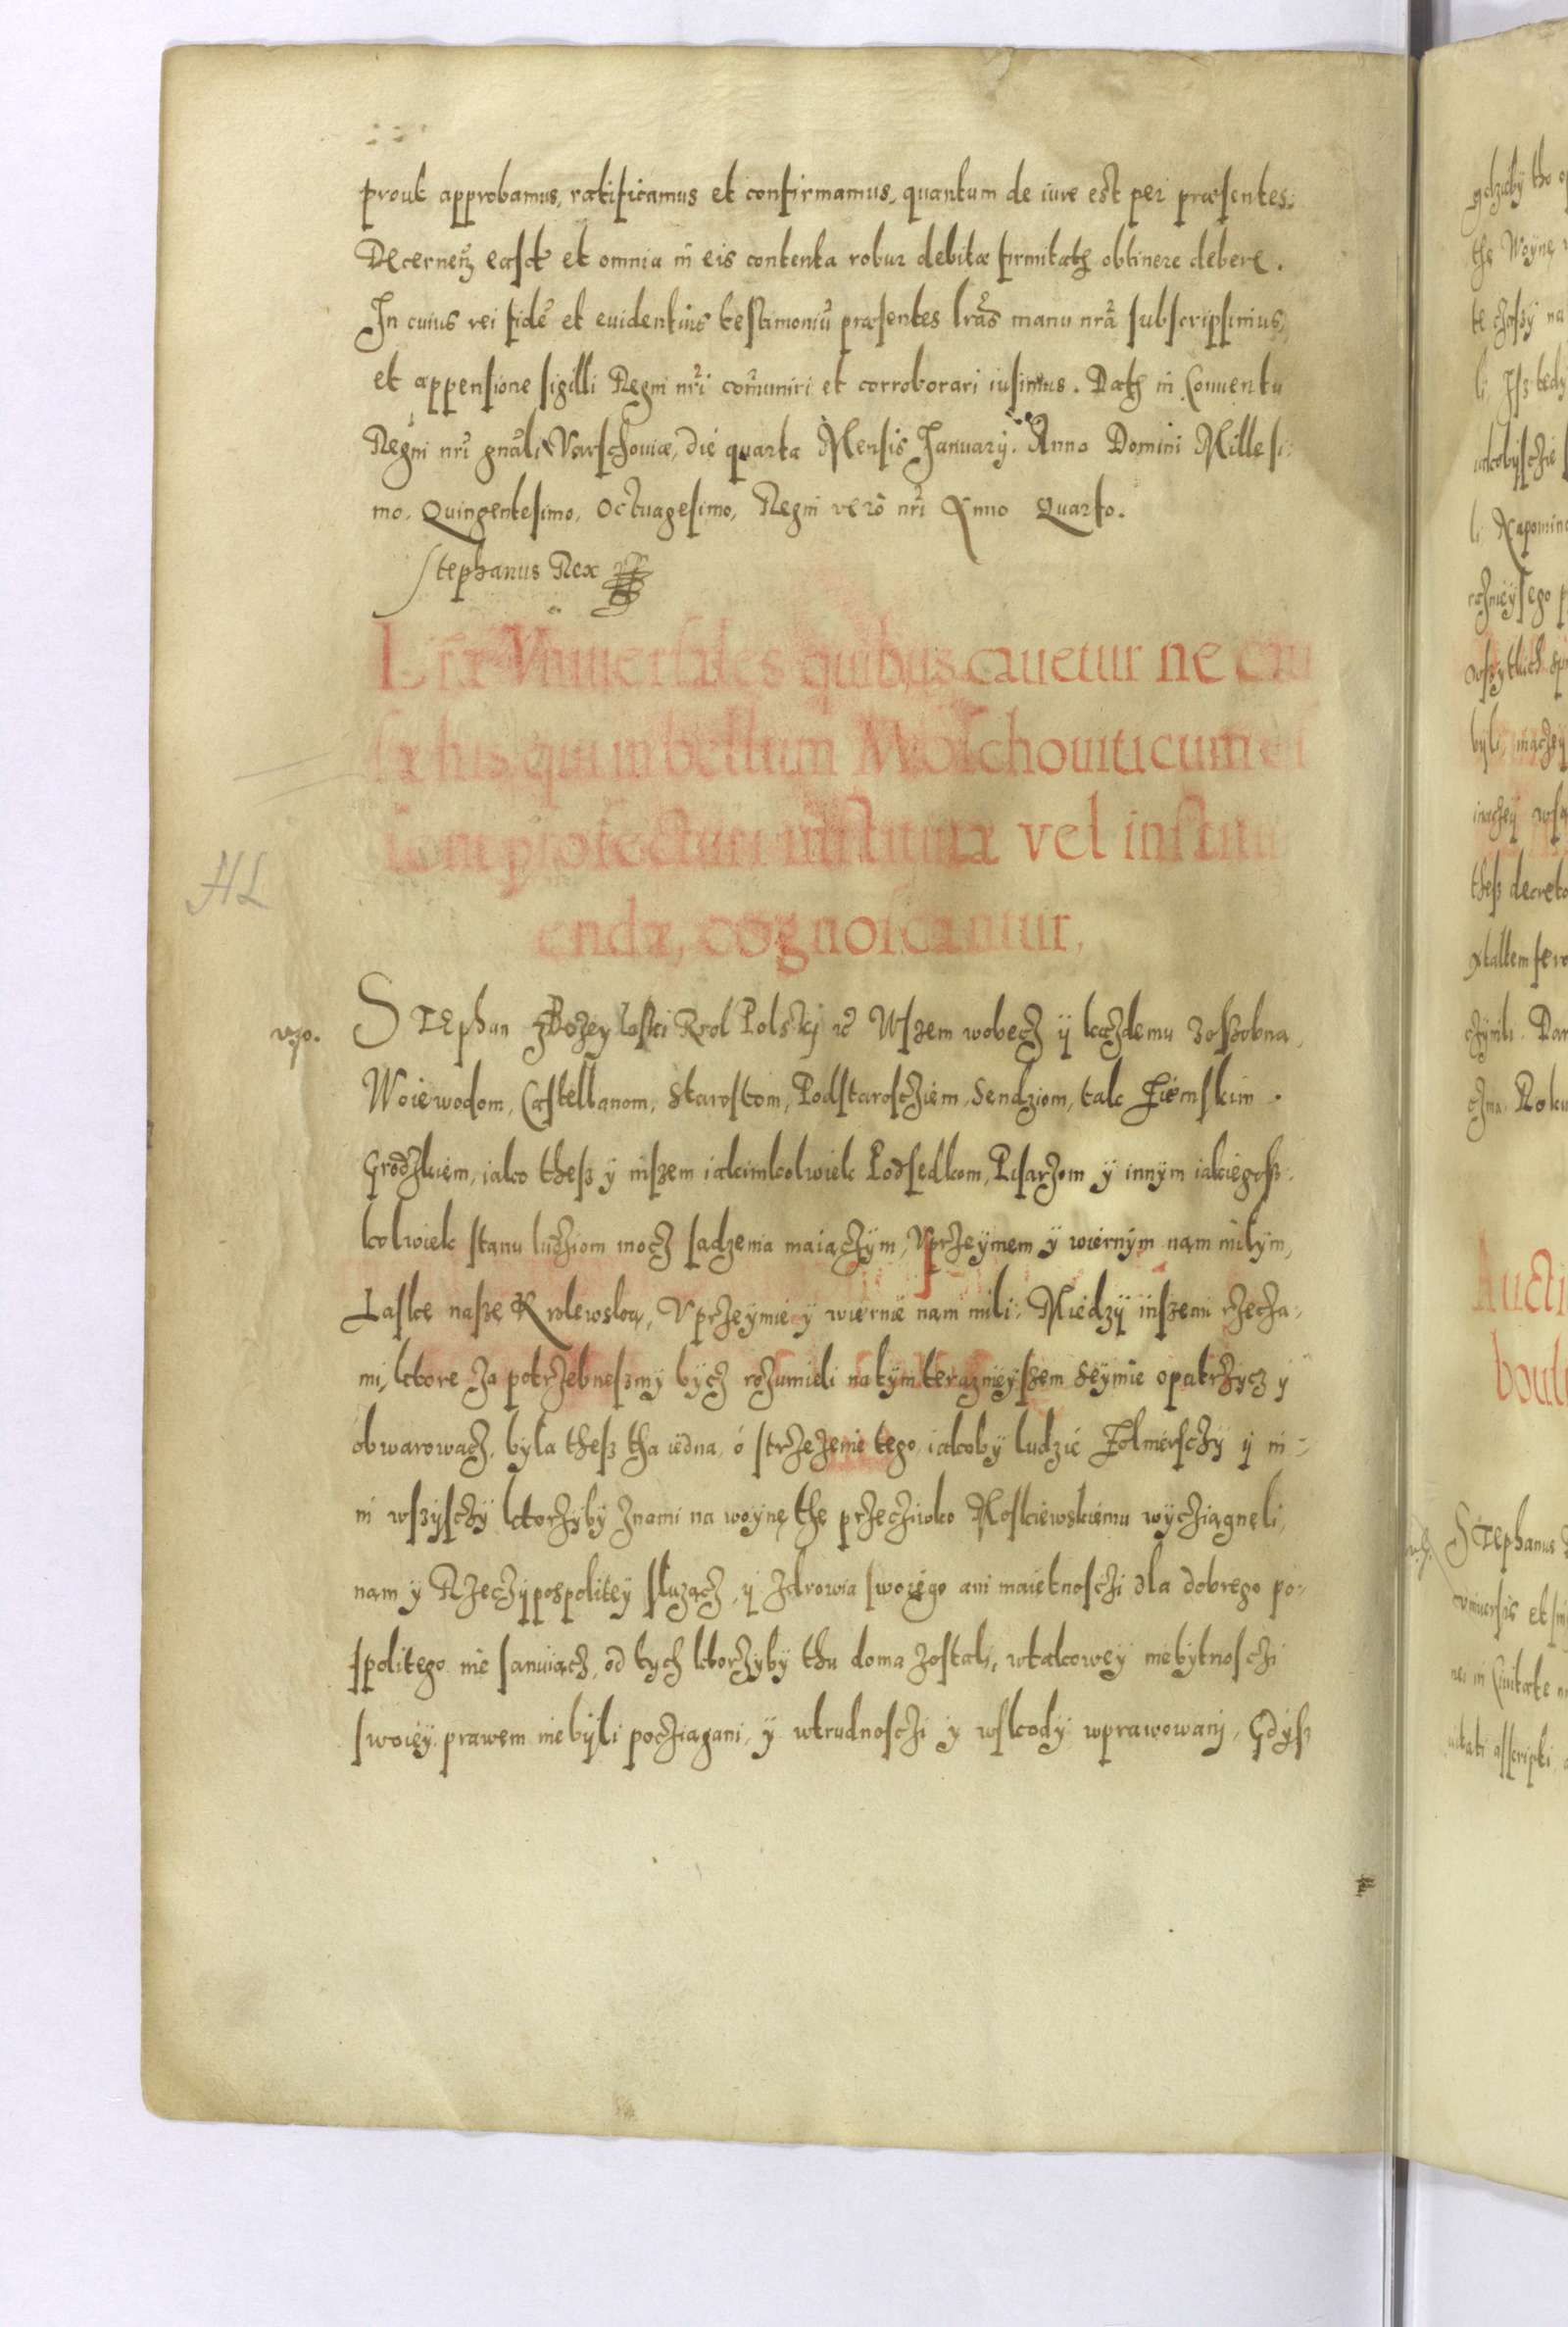 prout approbamus, ratificamus et confirmamus, quantum de iure est per præsentes.
Decernen̄ easd et omnia in eis contenta robur debitæ firmitatꝭ obtinere debere.
In cuius rei fidē et euidentius testimoniū præsentes lrās manu nrā subscripsimus,
et appensione sigilli Regni nr̄i com̄uniri et corroborari iusimus. Datꝭ in Conuentu
Regni nr̄i gnāli Varschouiæ, die quarta Mensis Januarij. Anno Domini Millesi:
mo, Quingentesimo, Octuagesimo, Regni verō nr̄i Anno Quarto.
Stephanus Rex
Lr̄æ Vniuersales quibus cauetur ne cau
sæ his qui in bellum Moschouiticum
profecturi institutæ vel institu
endæ, cognoscantur,
HL
STEphan z Bożey łaski Krol Polskj ⁊c̄ Wszem wobecz ÿ każdemu zoszobna,
Woiewodom, Castellanom, Starostom, Podstarosczièm, Sendziom, tak Ziemskim
Grodzkièm, iako thesz ÿ inszem iakimkolwiek Podsędkom, Pisarzom ÿ innÿm iakiègosz:
kolwiek stanu ludziom mocz sądzenia maiączÿm, Vprzeÿmem ÿ wiernÿm nam miłÿm,
Łaskę naszę Krolewską, Vprzeÿmie ÿ wiernie nam mili: Miedzÿ inszemi rzecza:
mi, ktore za potrzebne szmÿ bÿcz rozumieli na tÿm teraznieÿszem Seÿmie opatrzÿcz ÿ
obwarowacz, bÿła thesz tha iedna, o strzezenie tego iakobÿ ludzie Zołnierszczÿ ÿ in:
ni wszÿsczÿ ktorzÿbÿ z nami na woÿnę thę przecziwko Moskiewskiemu wÿcziągnęli,
nam ÿ Rzeczÿpospoliteÿ służącz, ÿ zdrowia swoiègo ani maiètnosczi dla dobrego po:
spolitego nie szanuiącz, od tÿch ktorzÿbÿ thu doma zostali, w takoweÿ niebÿtnosczi
swoieÿ prawem nie bÿli pocziągani, ÿ w trudnosczi ÿ w szkodÿ wprawowanj, Gdÿsz